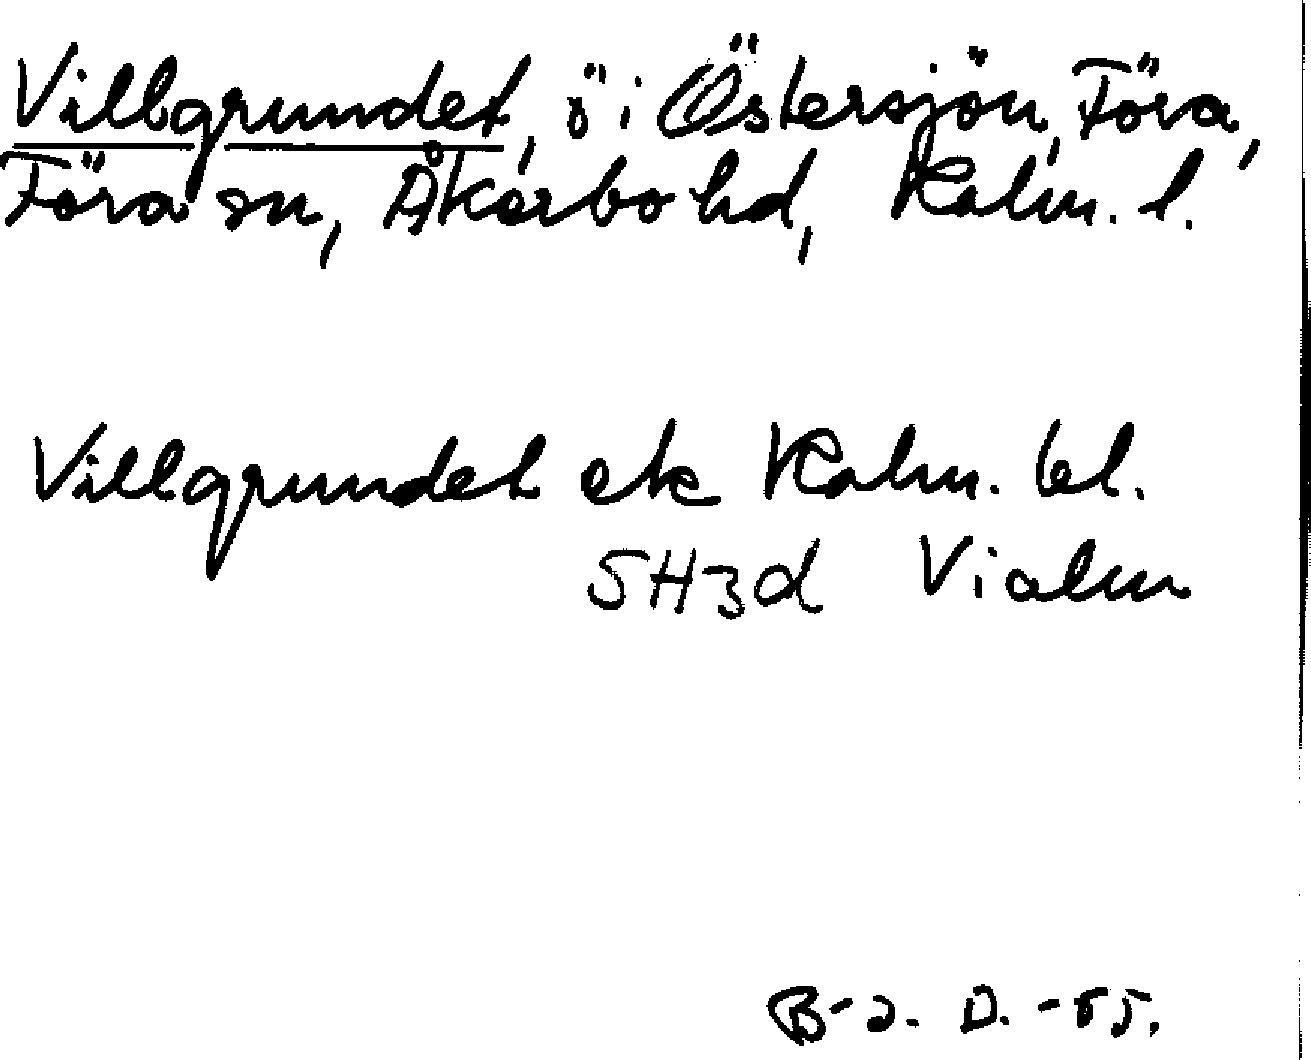 Villgrundet, ö i Östersjön, Föra,
Föra sn, Åkerbo hd, Kalm. l.
Villgrundet ek Kalm. bl.
5H3d Vialm
B-a. D. -85.